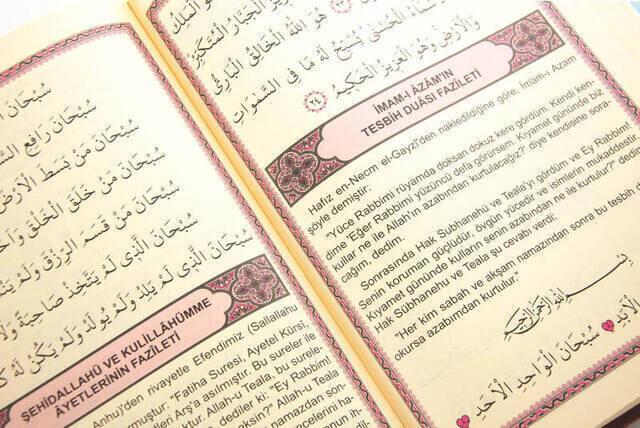 الْمَلِكُ
الْعَزِيزُ الْجَبَّارُ الْمُتَكَبِّرُ
هُوَ اللهُ الْخَالِقُ الْبَارِئُ
الْحُسْنٰى يُسَبِّحُ لَهُ مَا فِي السَّمٰوَاتِ
وَالْاَرْضِ وَهُوَ الْعَزِيزُ الْحَكِيمُ ﴿٢٤﴾
İMAM-I ÂZÂM'IN
TESBİH DUÂSI FAZİLETİ
Hafız en-Necm el-Gayzî'den nakledildiğine göre, İmam-ı Azam
şöyle demiştir:
"Yüce Rabbimi rüyamda doksan dokuz kere gördüm. Kendi ken-
dime 'Eğer Rabbimi yüzüncü defa görürsem, Kıyamet gününde
kullar ne ile Allah'ın azabından kurtulacağız?' diye kendisine sora-
cağım, dedim.
Sonrasında Hak Subhanehü ve Teala'yı gördüm ve Ey Rabbim!
Senin koruman güçlüdür, övgün yücedir ve isimlerin mukaddestir.
Kıyamet gününde kulların senin azabından ne ile kurtulur?" dedim.
Hak Sübhanehu ve Teala şu cevabı verdi:
"Her kim sabah ve akşam namazından sonra bu tesbih
okursa azabımdan kurtulur."
بِسْمِ اللهِ الرَّحْمٰنِ الرَّحِيمِ
سُبْحَانَ الْوَاحِدِ الْاَحَدِ
سُبْحَانَ
سُبْحَانَ رَافِعِ
سُبْحَانَ مَنْ بَسَطَ الْاَرْضَ
سُبْحَانَ مَنْ خَلَقَ الْخَلْقَ
سُبْحَانَ مَنْ قَسَمَ الرِّزْقَ وَلَمْ
سُبْحَانَ الَّذِي لَمْ يَتَّخِذْ صَاحِبَةً وَلَا
سُبْحَانَ الَّذِي لَمْ يَلِدْ وَلَمْ يُولَدْ وَلَمْ يَكُنْ لَهُ
ŞEHİDALLAHÜ VE KULİLLÂHÜMME
ÂYETLERİNİN FAZİLETİ
Anhu'den rivayetle Efendimiz (Sallallahu
"Fatiha Suresi, Ayetel Kürsî,
Arş'a asılmıştır. Bu sureler ile
Allah-u Teala, bu surele-
dediler ki: "Ey Rabbim!
Allah-u Teala
namazdan son-